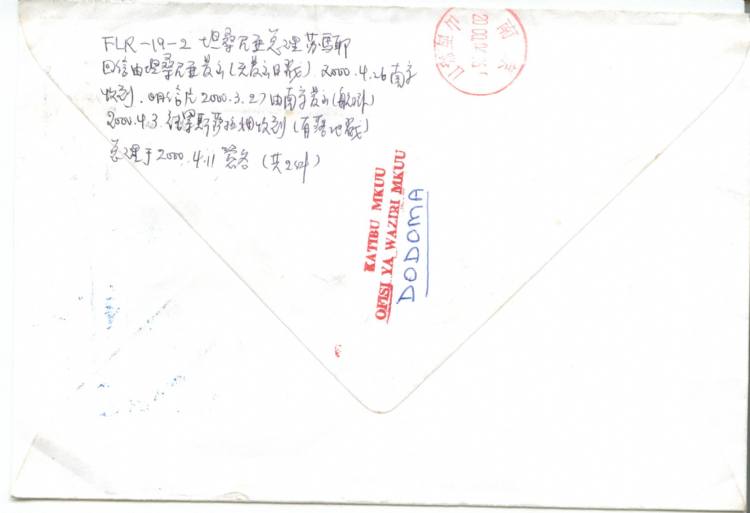 FLR-19-2 坦桑尼亚总理苏马耶
回信由坦桑尼亚发出(无发出日戳) 2000.4.26南京
收到.明信片2000.3.27由南京发出
2000.4.3.经达累斯萨拉姆收到(有落地戳)
总理于2000.4.11签名
南京
KATIBU MKUU
OFISI YA WAZIRI MKUU
DODOMA